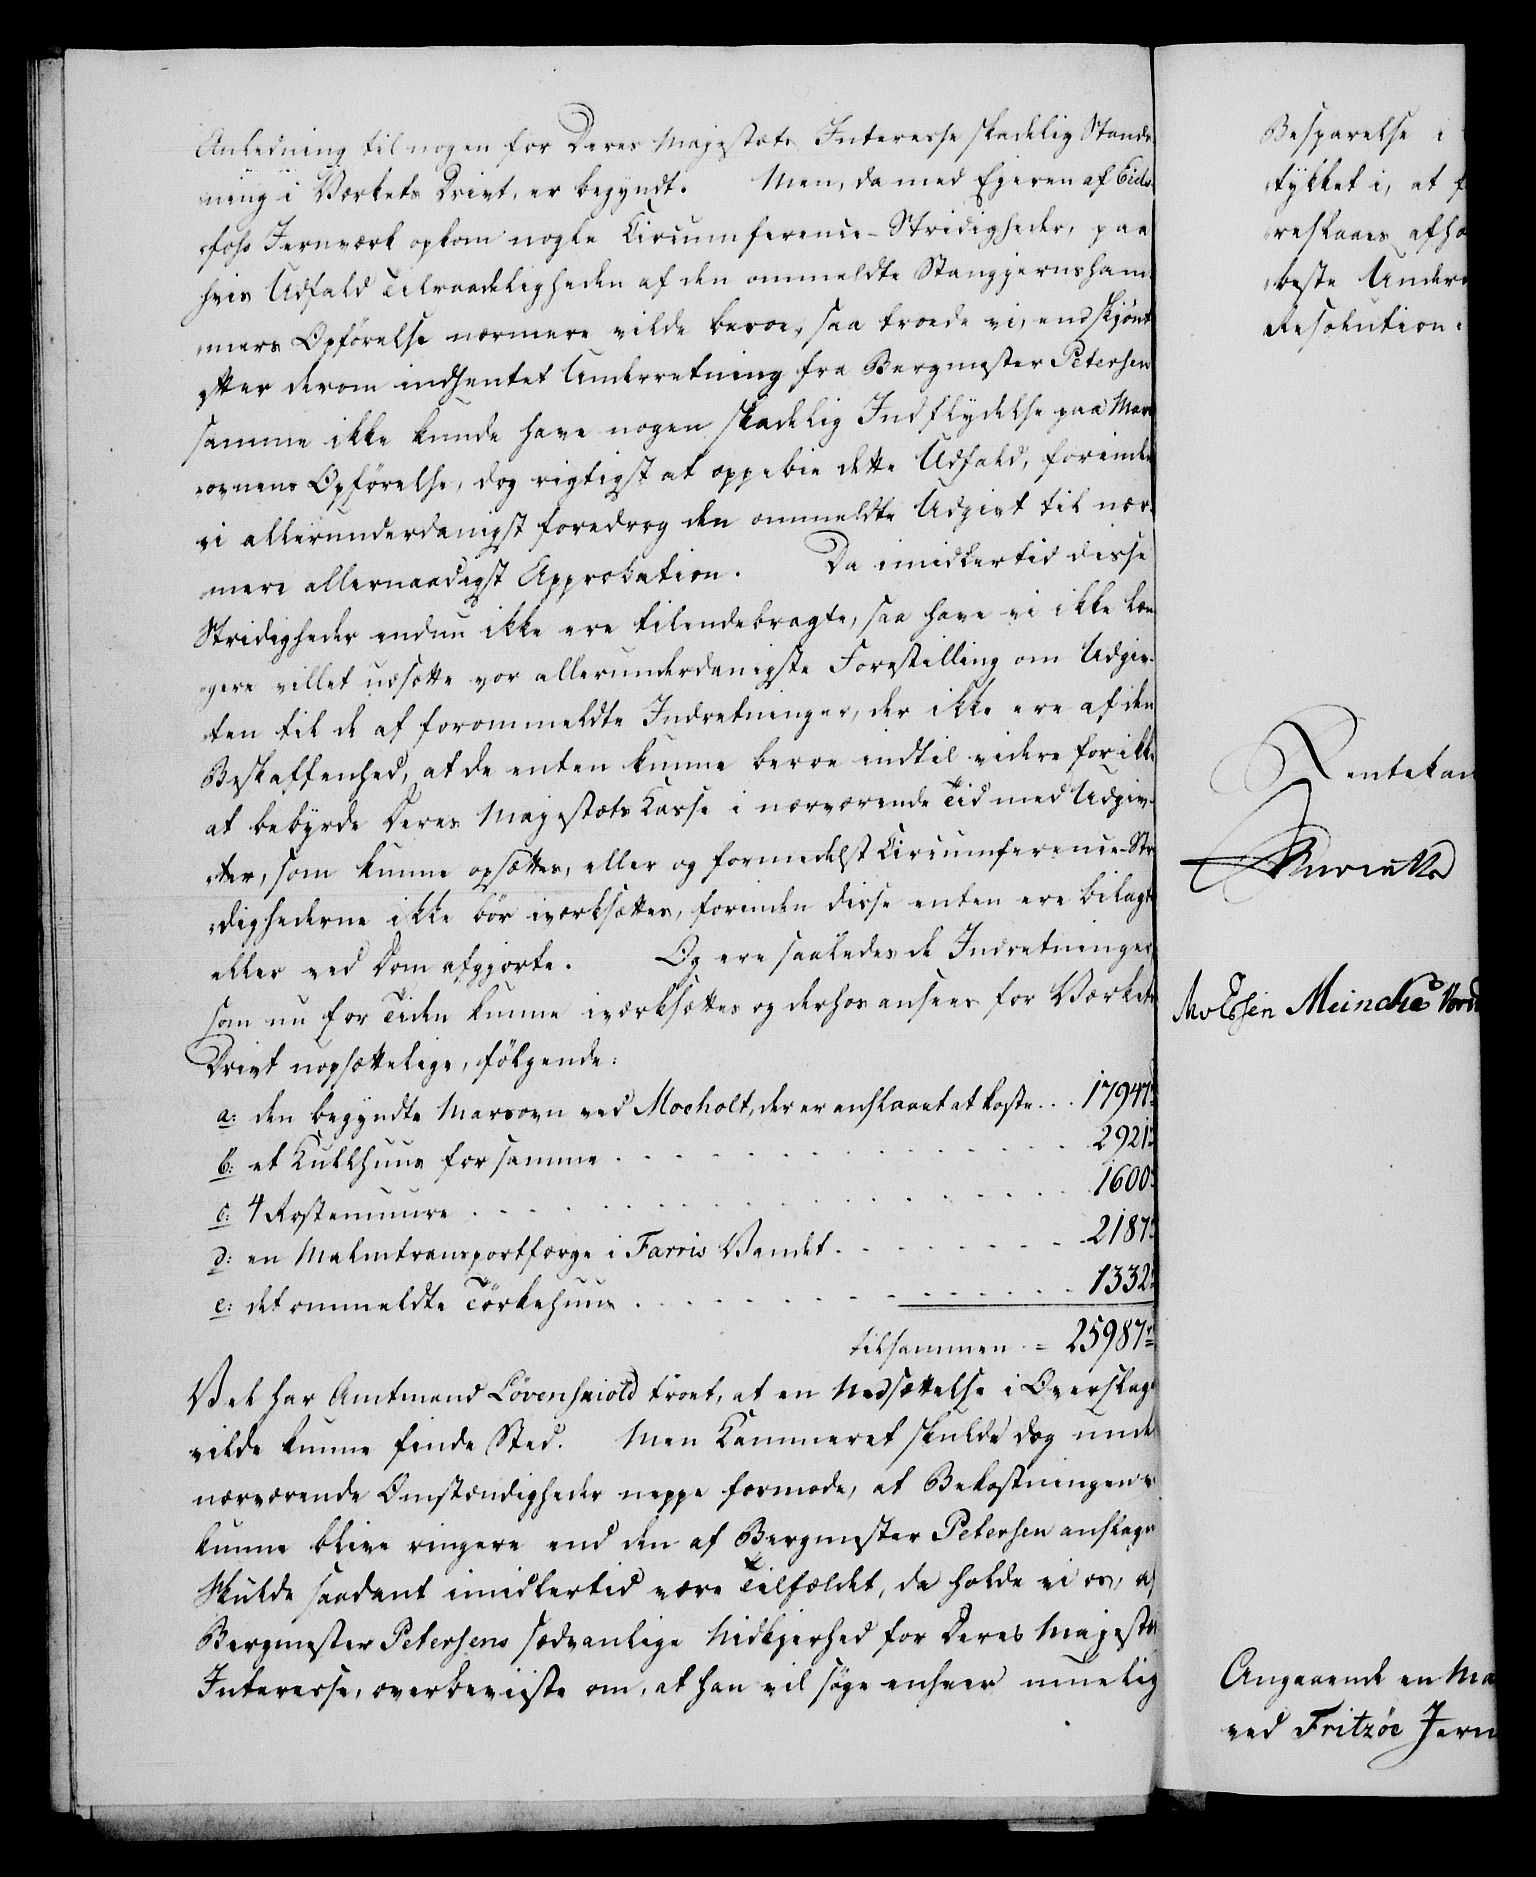 Anledning til nogen for Deres Majestæts Interesse skadelig Stands-
ning i Værkets Drivt, er begyndt. Men, da med Egeren af Eids-
foss Jernværk opkom nogle Circumference-Stridigheder, paa
hvis Udfald Tilraadeligheden af den ommeldte Stangjernsham-
mers Opförelse nærmere vilde beroe, saa troede vi, endskjönt
efter derom indhentet Underretning fra Bergmester Petersen
samme ikke kunde have nogen skadelig Indflydelse paa Mars-
ovnens Opförelse, dog rigtigst at oppebie dette Udfald, forinden
vi allerunderdanigst foredrog den ommeldte Udgivt til nær-
mere allernaadigst Approbation. Da imidlertid disse
Stridigheder endnu ikke ere tilendebragte, saa have vi ikke læn-
gere villet udsætte vor allerunderdanigste Forestilling om Udgiv-
ten til de af forommeldte Indretninger, der ikke ere af den
Beskaffenhed, at de enten kunne beroe indtil videre for ikke
at bebyrde Deres Majestæts Kasse i nærværende Tid med Udgiv-
ter, som kunne opsættes, eller og formedelst Circumference-Stri-
dighederne ikke bör iværksættes, forinden disse enten ere bilagte
eller ved Dom afgjorte. Og ere saaledes de Indretninger,
som nu for Tiden kunne iværksættes og derhos ansees for Værkets
Drivt uopsættelige, fölgende:
a: den begyndte Marsovn ved Moeholt, der er anslaaet at koste . . . 17947
b: et Kullhuus for samme . . . 2921
c: 4 Rostemuure . . . 1600
d: en Malmtransportfærge i Farris Vandet . . . 2187
e: det ommeldte Törkehuus . . . 1332
tilsammen = 25987
Vel har Amtmand Lövenskiold troet, at en Nedsættelse i Overslaget
vilde kunne finde Sted. Men Kammeret skulde dog under
nærværende Omstændigheder neppe formode, at Bekostningen
kunne blive ringere end den af Bergmester Petersen anslagne
Skulde saadant imidlertid være Tilfældet, da holde vi os, af
Bergmester Petersens sædvanlige Nidkjerhed for Deres Majestæts
Interesse, overbeviiste om, at han vil söge enhver muelig
Besparelse i
tykket i, at
reslaaes afhæ
beste Under
Resolution.
Rentekam
Meincke
Angaaende en Ma
ved Fritzöe Jern